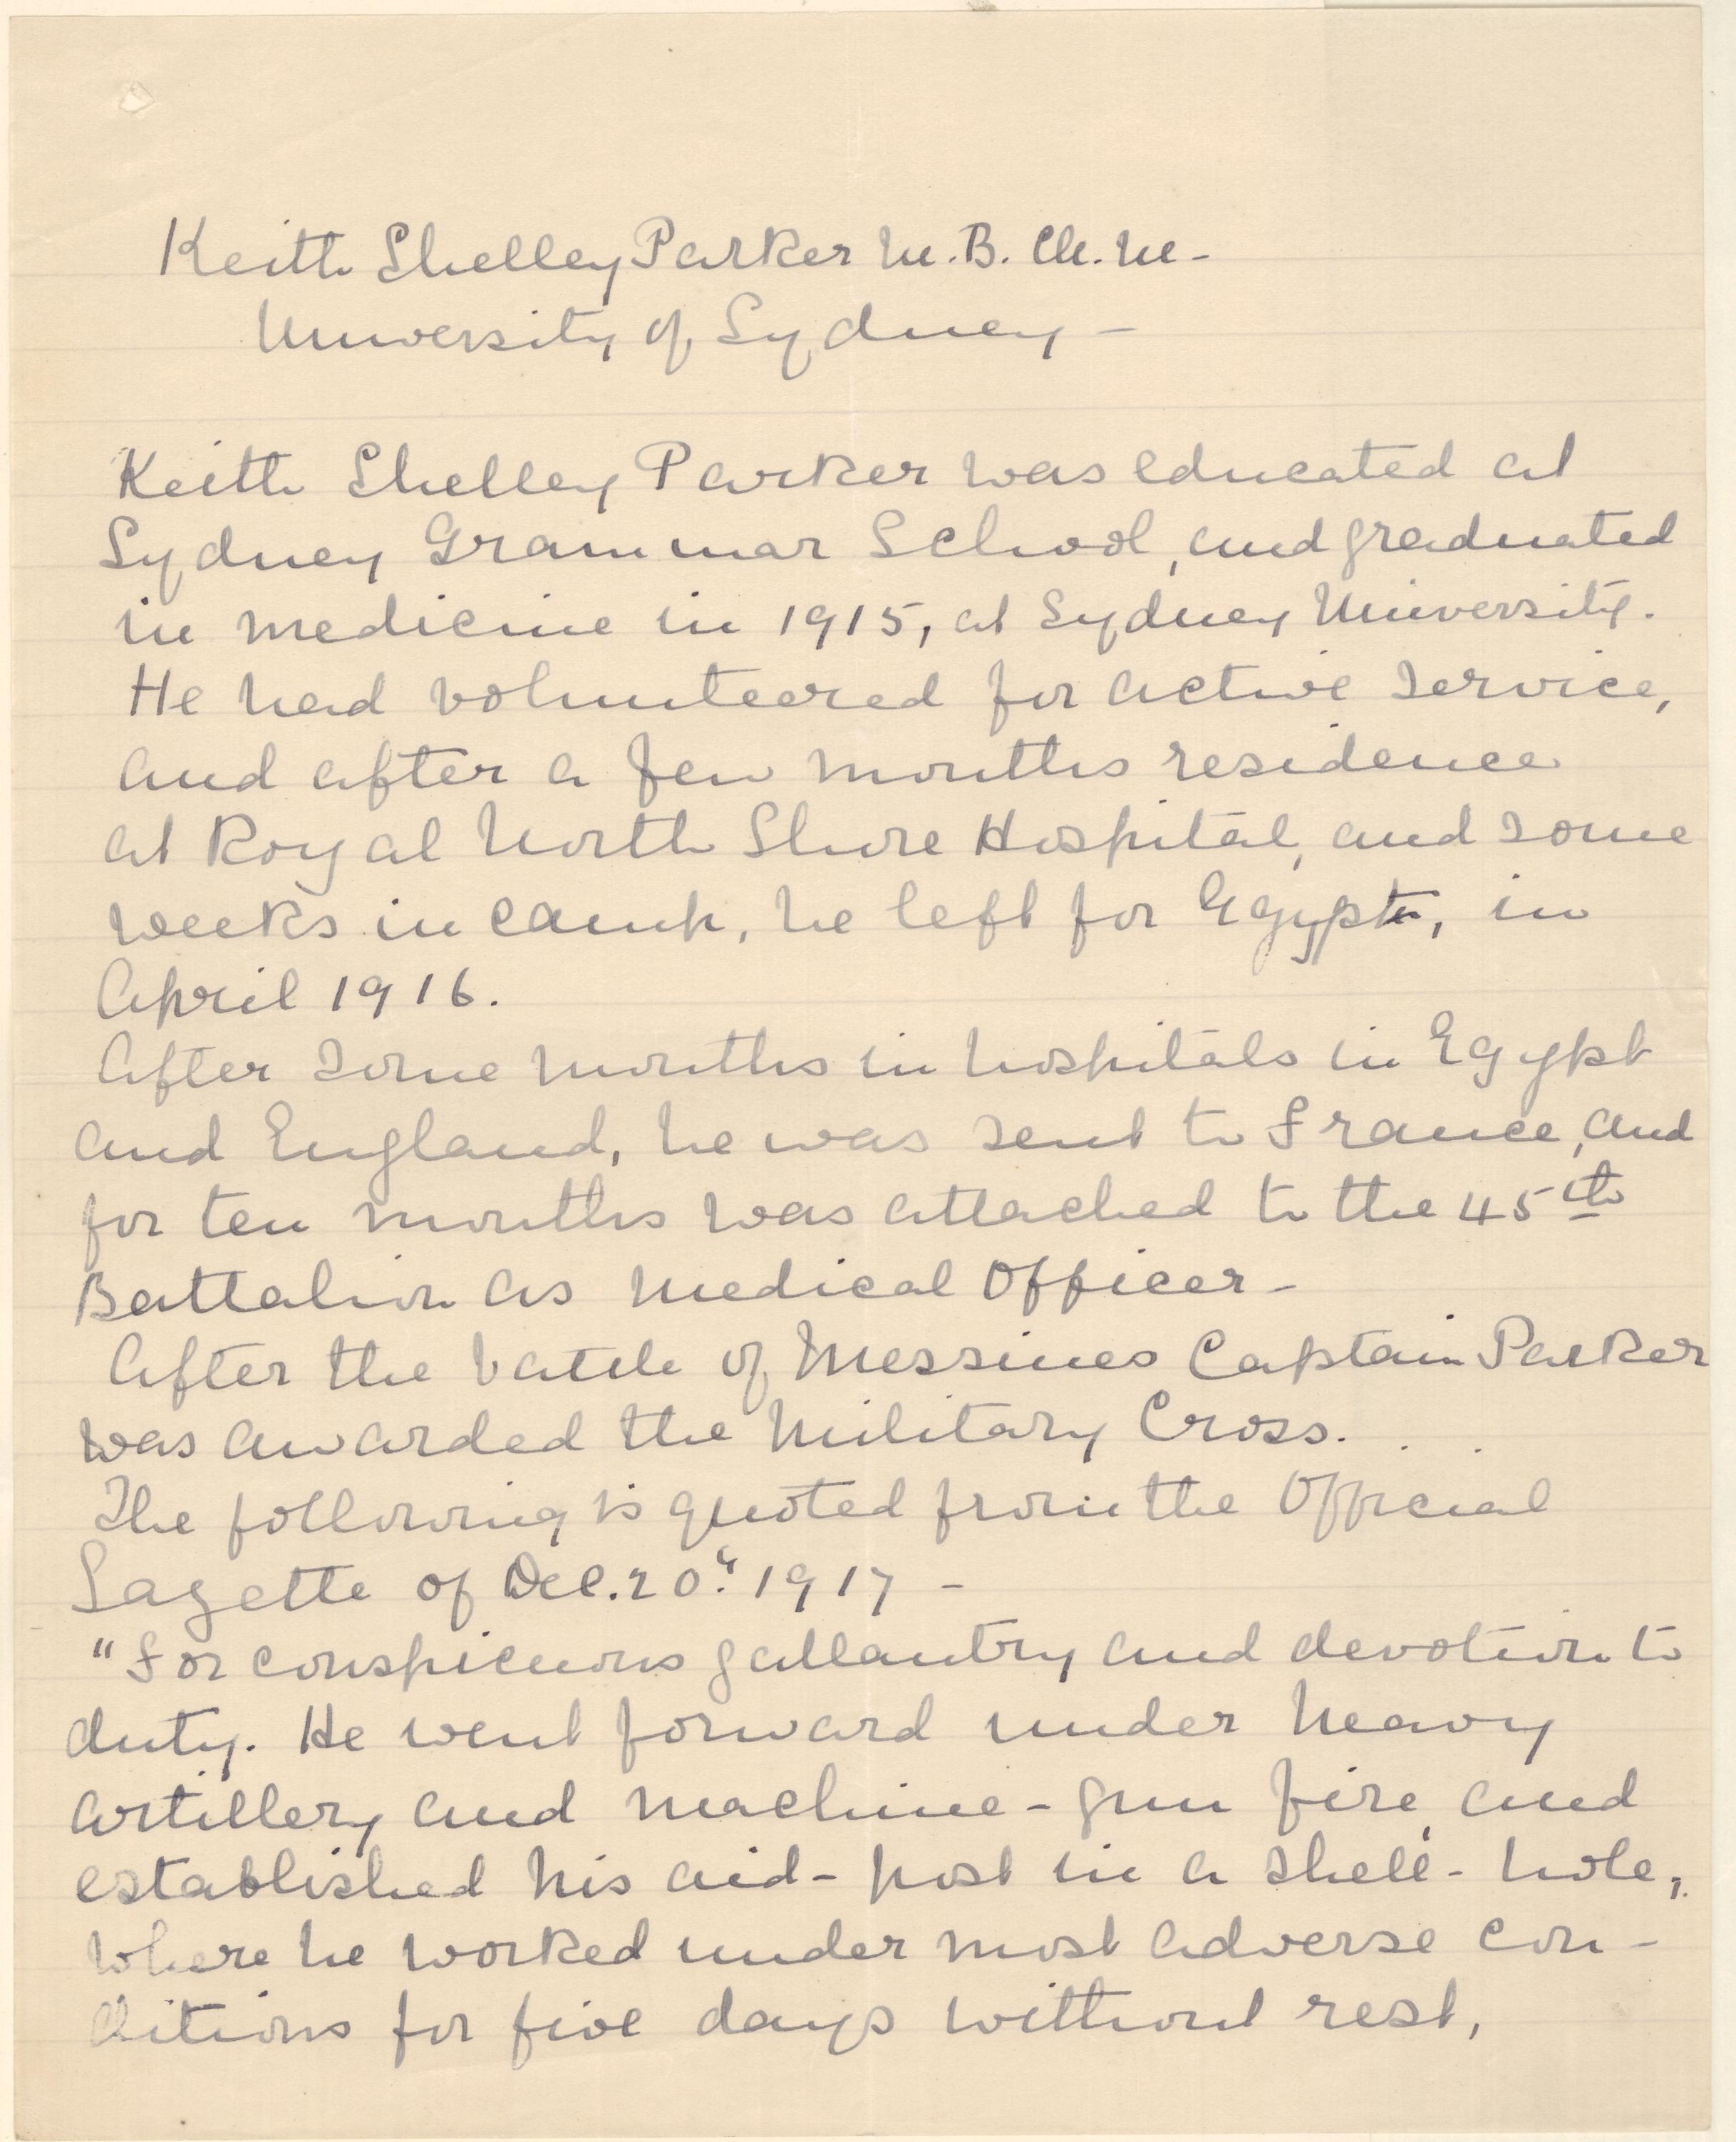 Keith Shelley Parker M.B. Ch.M-
University of Sydney -
Keith Shelley Parker was educated at
Sydney Grammar School, and graduated
in medicine in 1915, at Sydney University.
He had volunteered for active service,
and after a few months residence
at Royal North Shore Hospital, and some
weeks in camp, he left for Egypt, in
April 1916.
After some months in hospitals in Egypt
and England, he was sent to France, and
for ten months was attached to the 45th
Battalion as Medical Officer -
After the battle of Messines Captain Parker
was awarded the Military Cross. . .
The following is quoted from the Official
Gazette of Dec. 20th 1917 -
"For conspicuous gallantry and devotion to
duty. He went forward under heavy
artillery and machine-gun fire, and
established his aid-post in a shell-hole,
where he worked under most adverse con-
ditions for five days without rest,